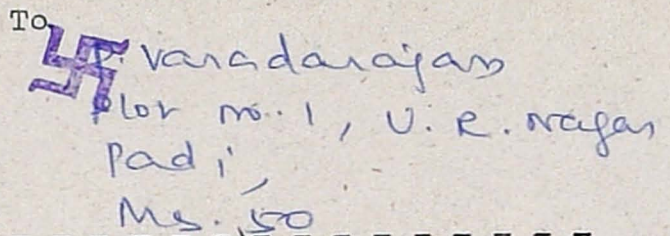 To
P. Varadarajan
Plot no. 1, V. R. Nagar
Padi,
Ms. 50